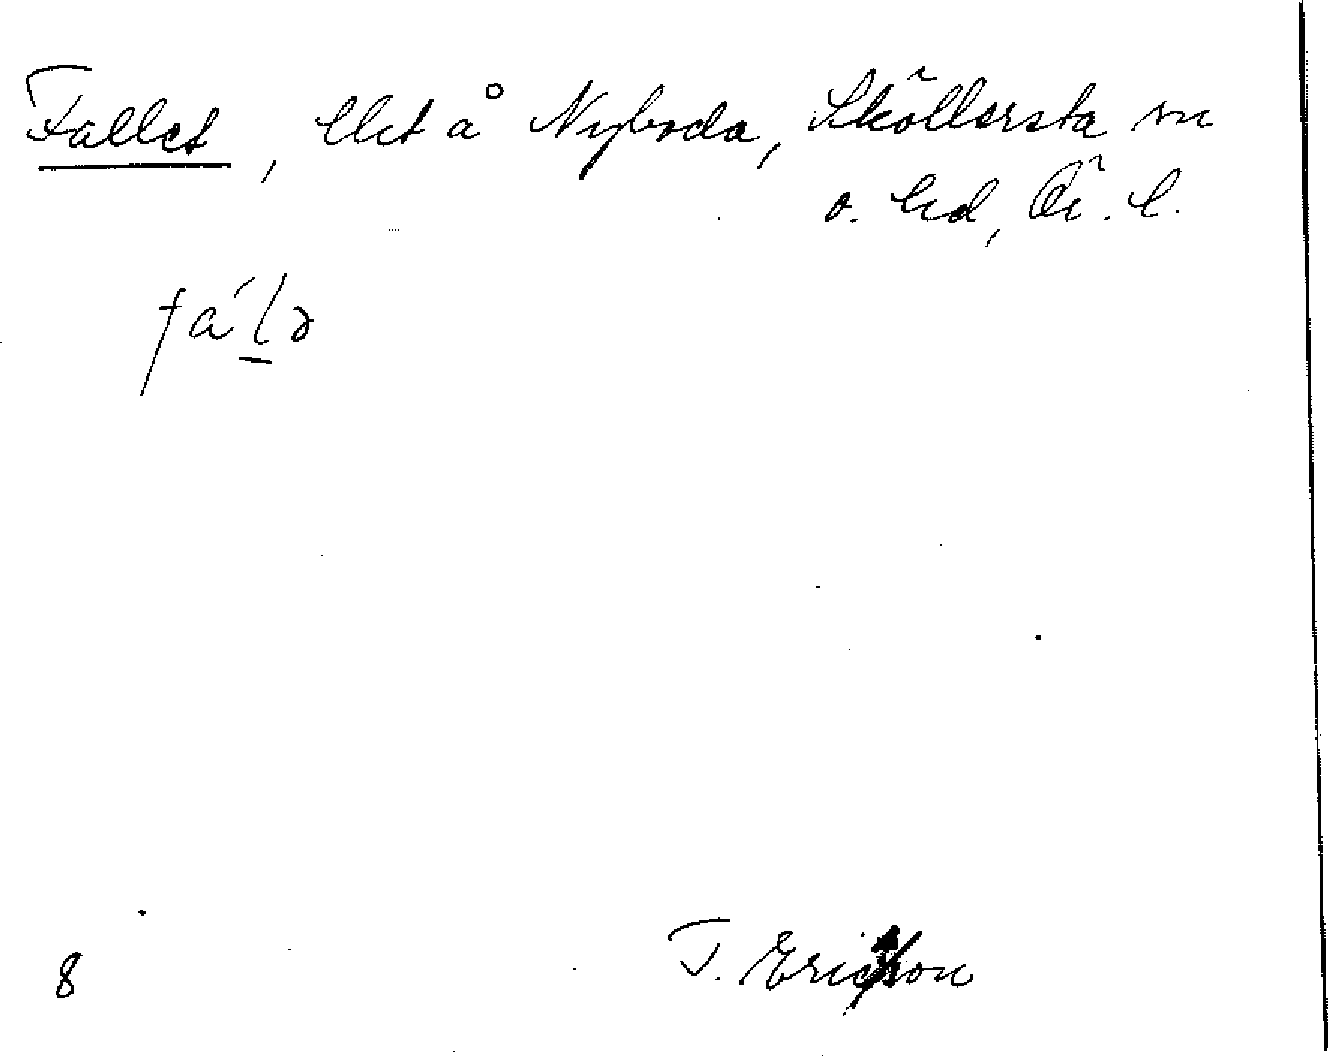 Fallet, lht å Nyboda, Sköllersta sn
o. hd, Ör. l.
fá'lə
8 T. Ericsson